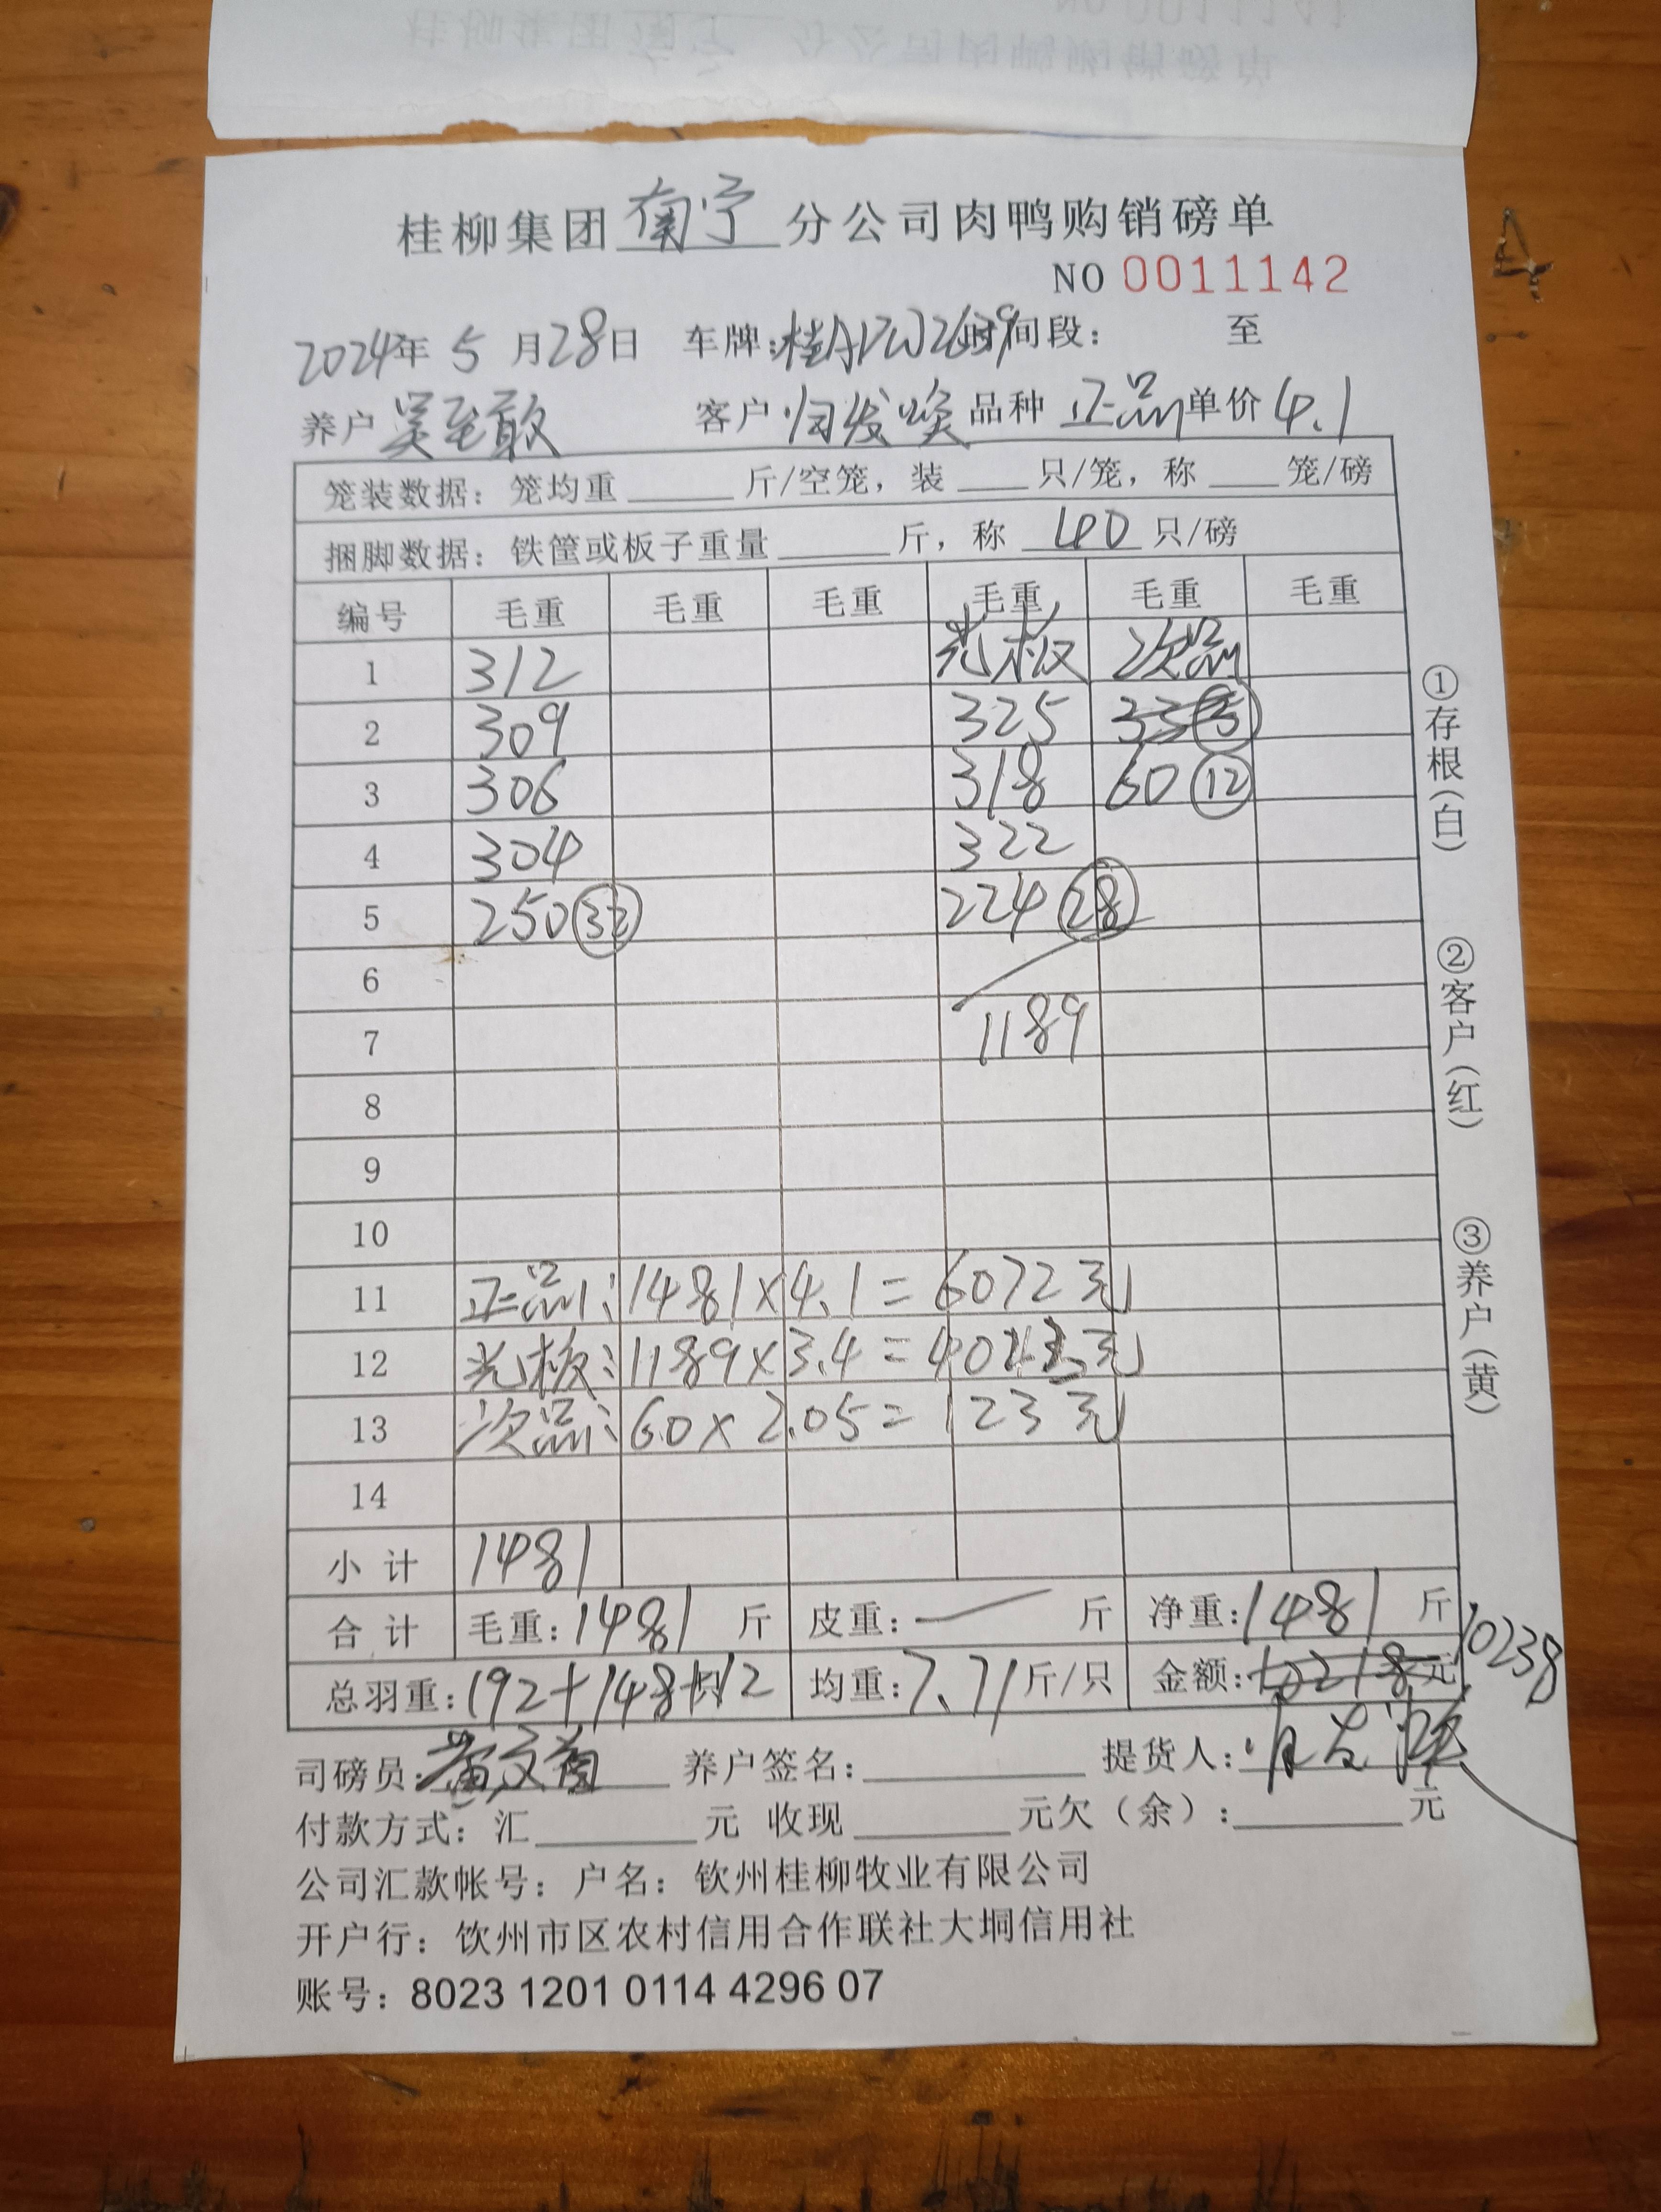 桂柳集团南宁分公司肉鸭购销磅单
NO 0011142
2024年 5 月28日 车牌:桂A 时间段: 至
养户 吴至敢 客户 归发唤 品种 正品 单价 4.1
笼装数据: 笼均重 斤/空笼, 装 只/笼, 称 笼/磅
捆脚数据: 铁筐或板子重量 斤, 称 40 只/磅
编号 毛重 毛重 毛重 毛重 毛重 毛重
1 312 光板 次品
2 309 325 33 5
3 306 318 60 12
4 304 322
5 250 32 224 28
6
7 1189
8
9
10
11 正品:1481×4.1=6072元
12 光板:1189×3.4=元
13 次品:60×2.05=123元
14
小计 1481
合计 毛重:1481 斤 皮重:— 斤 净重:1481 斤
总羽重:192+148+12 均重:7.71斤/只 金额:10218元 10238
司磅员: 养户签名: 提货人:
付款方式: 汇 元 收现 元欠(余): 元
公司汇款帐号: 户名: 钦州桂柳牧业有限公司
开户行: 饮州市区农村信用合作联社大垌信用社
账号: 8023 1201 0114 4296 07
①存根(白)
②客户(红)
③养户(黄)